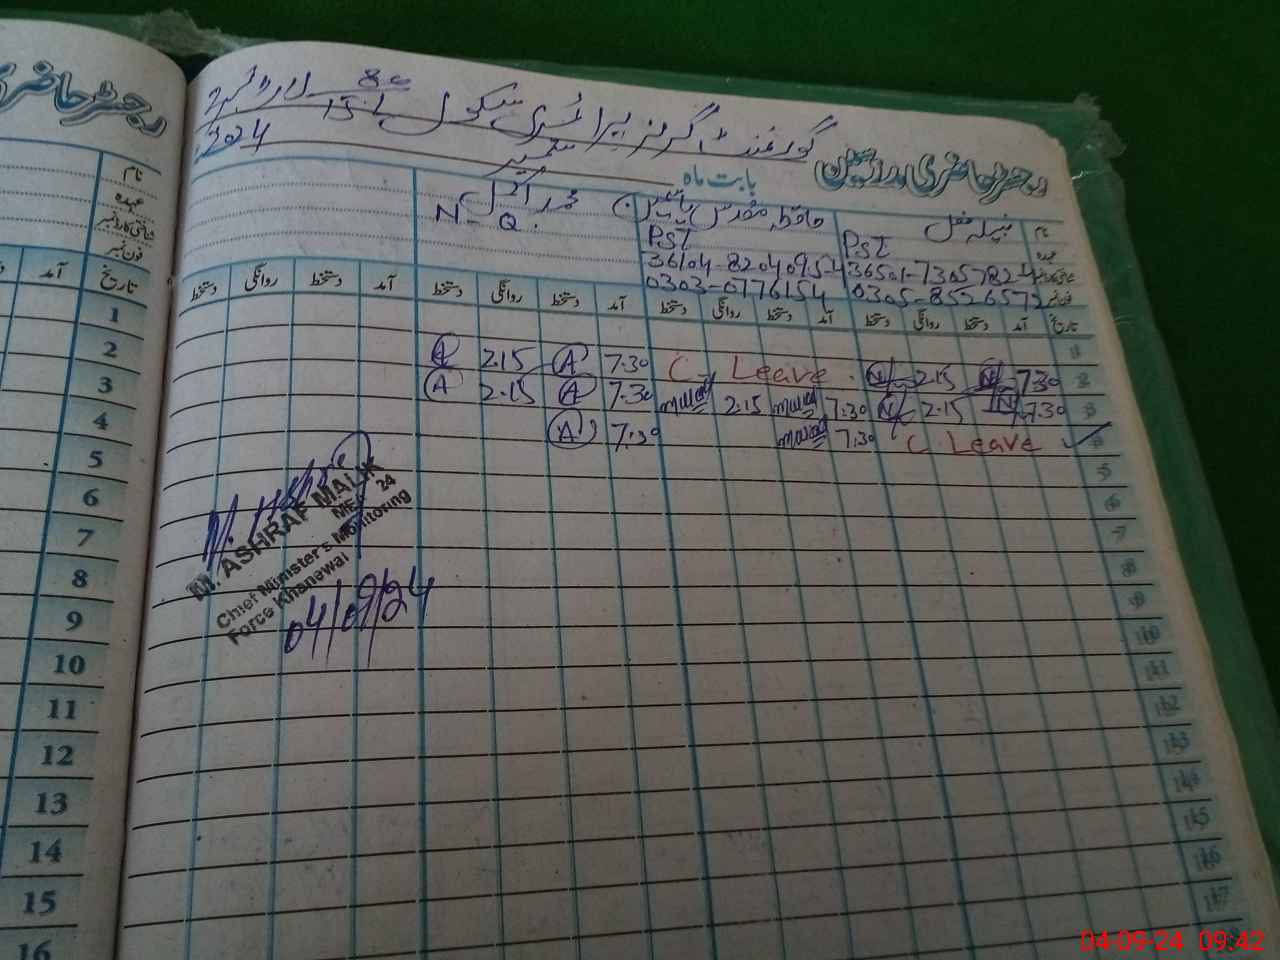 رجسٹر حاضری مدرسین
گورنمنٹ گرلز پرائمری سکول 80/15
2024
بابت ماہ ستمبر
نام نبیلہ حافظہ یاسمین محمد
عہدہ PST PST N-Q.
36501-7305782-4 36104-8204095-4
0305-8526572 0303-0776154
تاریخ آمد دستخط روانگی دستخط آمد دستخط روانگی دستخط آمد دستخط روانگی دستخط آمد دستخط روانگی دستخط
1
2 7.30 N 2.15 N C. Leave 7.30 A 2.15 A
3 7.30 N 2.15 N 7.30 2.15 7.30 A 2.15 A
4 C Leave 7.30 7.30 A
5
6
7
8
9
10
11
12
13
14
15
16
17
M. ASHRAF MALIK
MEA 24
Chief Minister's Monitoring
Force Khanewal
04/09/24
رجسٹر حاضری
نام
عہدہ
شناختی کارڈ نمبر
فون نمبر
تاریخ آمد
1
2
3
4
5
6
7
8
9
10
11
12
13
14
15
16
04-09-24 09:42